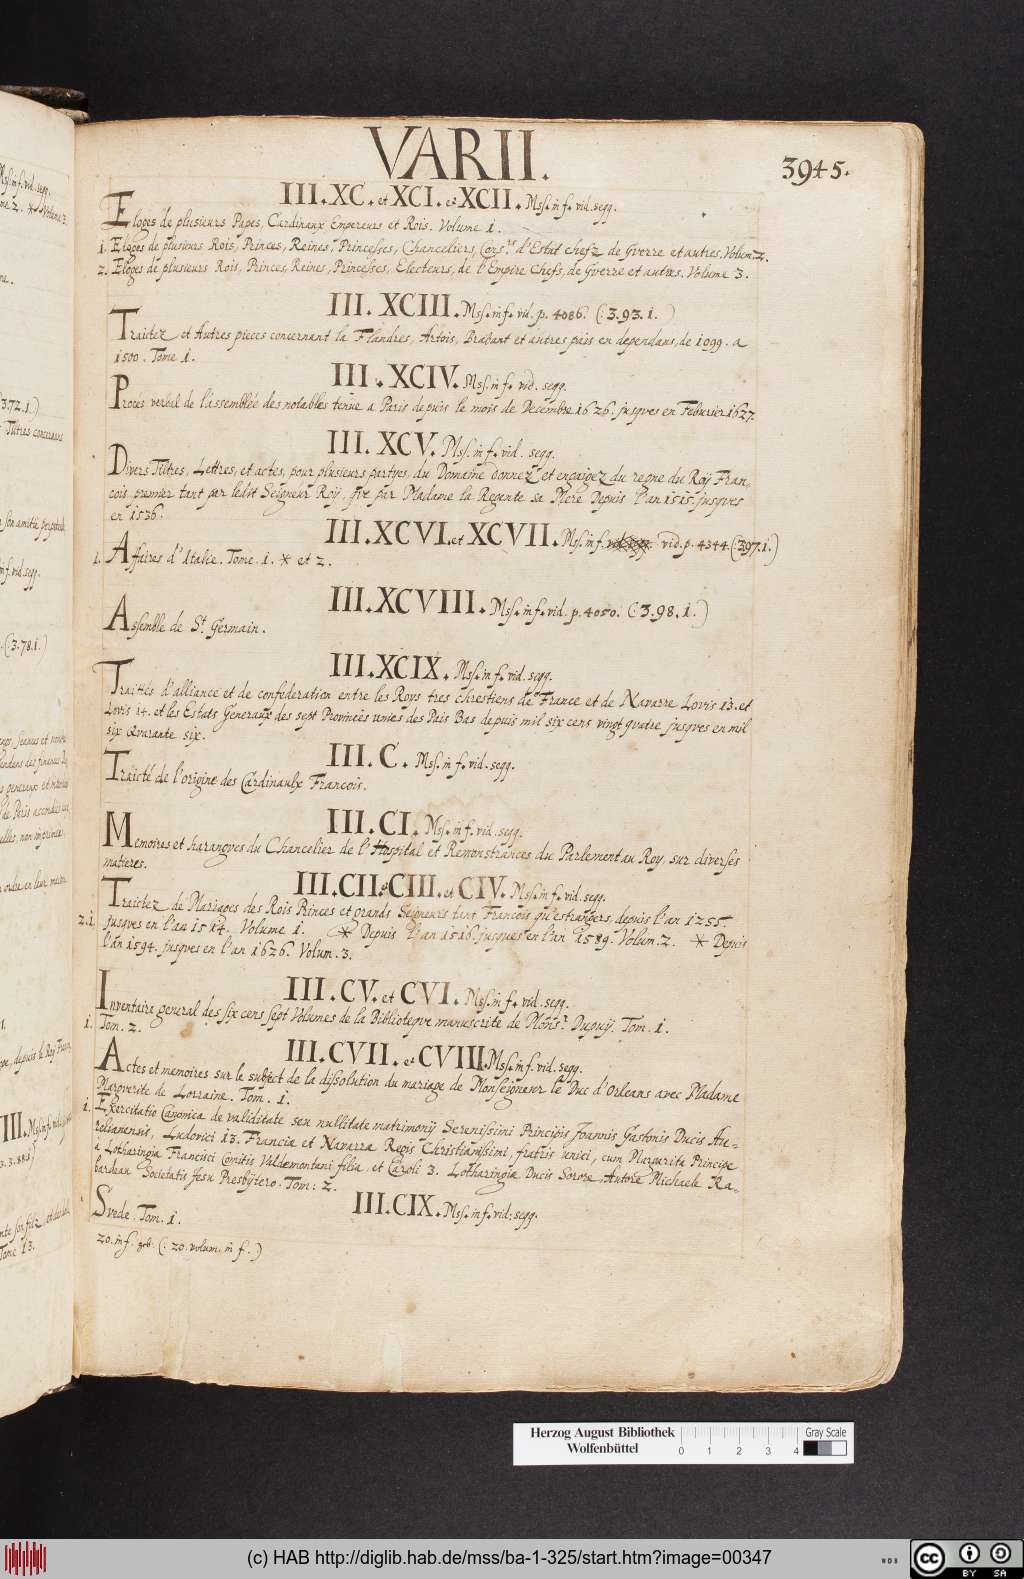 VARII.
3945.
III. XC. et XCI. et XCII. Mss. in f. vid. seqq.
Eloges de plusieurs Papes, Cardinaux Empereurs et Rois. Volume 1.
1. Eloges de plusieurs Rois, Princes, Reines, Princesses, Chanceliers, Cons.rs d'Estat chefz de Gverre et autres. Volum. 2.
2. Eloges de plusieurs Rois, Princes, Reines, Princesses, Electeurs, de l'Empire Chefs, de Gverre et autres. Volume 3.
III. XCIII. Mss. in f. vid. p. 4086. (: 3.93.1. )
Traictez et Autres pieces concernant la Flandres, Artois, Brabant et autres païs en dependans, de 1099. a
1500. Tome 1.
III. XCIV. Mss. in f. vid. seqq.
Proces verbal de l'assemblée des notables tenue a Paris depuis le mois de Decembre 1626. jusqves en Feburier 1627.
III. XCV. Mss. in f. vid. seqq.
Divers Titres, Lettres, et actes, pour plusieurs partyes du Domaine donnez et engaigez du regne du Roÿ Fran,
cois premier tant par ledit Seigneur Roÿ, qve par Madame la Regente sa Mere Depuis l'an 1515. jusqves
en 1536.
III. XCVI. et XCVII. Mss. in f. vid. p. 4344. (: 397.1. )
1. Affaires d'Italie. Tome. 1. * et 2.
III. XCVIII. Mss. in f. vid. p. 4050. (: 3.98.1. )
Assemble de St. Germain.
III. XCIX. Mss. in f. vid. seqq.
Traittés d'alliance et de confederation entre les Roys tres chrestiens de France et de Navarre Lovis 13. et
Lovis 14. et les Estats Generaux des sept Provinces unies des Pais Bas depuis mil six cens vingt qvatre jusqves en mil
six qvarante six.
III. C. Mss. in f. vid. seqq.
Traicté de l'origine des Cardinaulx Francois.
III. CI. Mss. in f. vid. seqq.
Memoires et harangves du Chancelier de l'Hospital et Remonstrances du Parlement au Roy, sur diverses
matieres.
III. CII. et CIII. et CIV. Mss. in f. vid. seqq.
Traictez de Mariages des Rois Princes et grands Seigneurs tant Francois qu'estrangers, depuis l'an 1255.
2.1. jusqves en l'an 1514. Volume 1. * Depuis l'an 1516. jusqves en l'an 1589. Volum. 2. * Depuis
l'an 1594. jusqves en l'an 1626. Volum. 3.
III. CV. et CVI. Mss. in f. vid. seqq.
Inventaire general des six cens sept Volumes de la Biblioteqve manuscrite de Monsr. Dupuÿ. Tom. 1.
1. Tom. 2.
III. CVII. et CVIII. Mss. in f. vid. seqq.
Actes et memoires sur le subject de la dissolution du mariage de Monseigneur le Duc d'Orleans avec Madame
Margverite de Lorraine. Tom. 1.
1. Exercitatio Canonica de validitate seu nullitate matrimonij Serenissimi Principis Joannis Gastonis Ducis Au-
relianensis, Ludovici 13. Franciæ et Navarræ Regis Christianissimi, fratris unici, cum Margarita Principe
a Lotharingia Francisci Comitis Valdemontani filia, et Caroli 3. Lotharingiæ Ducis Sorore, Autore Michaele Ra-
bardeau Societatis Jesu Presbÿtero. Tom: 2.
III. CIX. Mss. in f. vid. seqq.
Svede. Tom. 1.
20. in f. geb. (: 20. volum. in f. )
Herzog August Bibliothek
Wolfenbüttel
0 1 2 3 4
Gray Scale
(c) HAB http://diglib.hab.de/mss/ba-1-325/start.htm?image=00347
WDB
cc BY SA